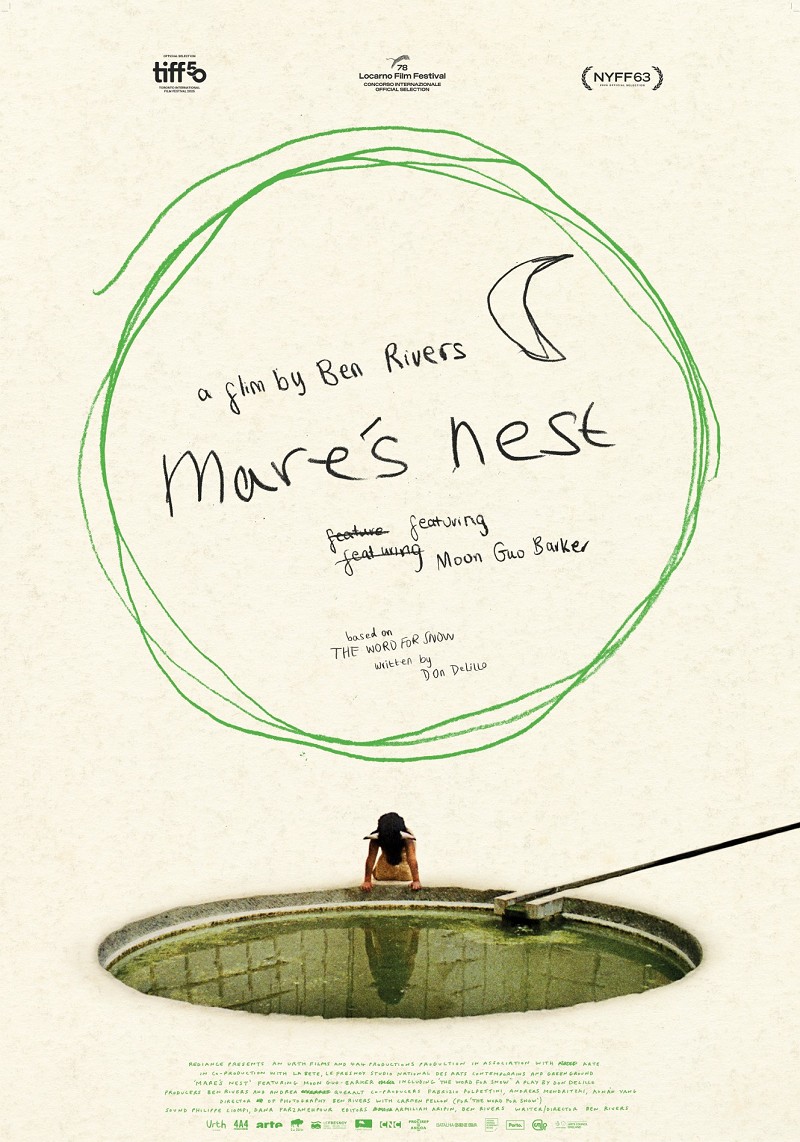 OFFICIAL SELECTION
tiff50
TORONTO INTERNATIONAL
FILM FESTIVAL 2025
78
Locarno Film Festival
CONCORSO INTERNAZIONALE
OFFICIAL SELECTION
NYFF63
2025 OFFICIAL SELECTION
a film by Ben Rivers
Mare's nest
feature featuring
featuring Moon Guo Barker
based on
THE WORD FOR SNOW
written by
Don DeLillo
REDIANCE PRESENTS AN URTH FILMS AND 4A4 PRODUCTIONS PRODUCTION IN ASSOCIATION WITH ARTE
IN CO-PRODUCTION WITH LA BÊTE, LE FRESNOY STUDIO NATIONAL DES ARTS CONTEMPORAINS AND GREENGROUND
'MARE'S NEST' FEATURING MOON GUO-BARKER INCLUDING 'THE WORD FOR SNOW' A PLAY BY DON DELILLO
PRODUCERS BEN RIVERS AND ANDREA QUERALT CO-PRODUCERS FABRIZIO POLPETTINI, ANDREAS MENDRITZKI, AONAN YANG
DIRECTOR OF PHOTOGRAPHY BEN RIVERS WITH CARMEN PELLON (FOR 'THE WORD FOR SNOW')
SOUND PHILIPPE CIOMPI, DANA FARZANEHPOUR EDITORS ARMILIAH ARIPIN, BEN RIVERS WRITER/DIRECTOR BEN RIVERS
Urth 4A4 arte LE FRESNOY CNC